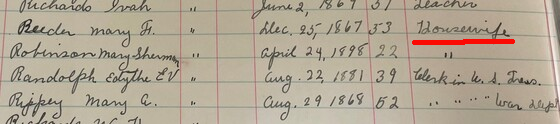 Richards Ivah " June 2, 1869 51 Teacher
Reeder Mary H. " Dec. 25, 1867 53 Housewife
Robinson Mary Sherman " April 24, 1898 22 "
Randolph Edythe E V " Aug. 22, 1881 39 Clerk in U. S. Treas.
Rippey Mary A. " Aug. 29 1868 52 " " " " War Dept
Richards